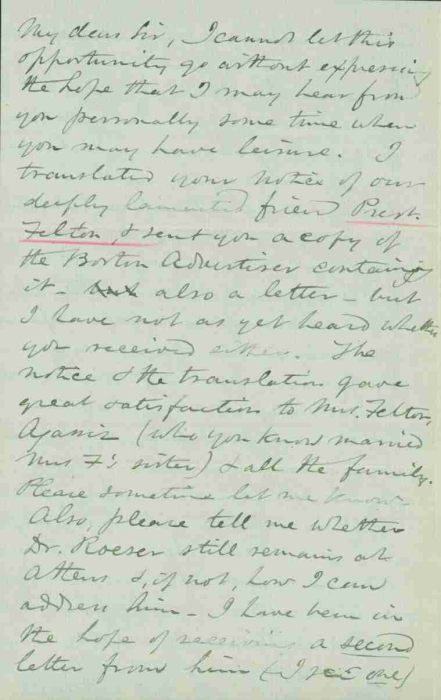 My dear Sir, I cannot let this
opportunity go without expressing
the hope that I may hear from
you personally some time when
you may have leisure. I
translated your notice of our
deeply lamented friend Prest.
Felton, & sent you a copy of
the Boston Advertiser containing
it - but also a letter - but
I have not as yet heard whether
you received either. The
notice & the translation gave
great satisfaction to Mrs. Felton,
Agassiz (who you know married
Mrs F's sister) & all the family.
Please sometime let me know.
Also, please tell me whether
Dr. Roeser still remains at
Athens &, if not, how I can
address him - I have been in
the hope of receiving a second
letter from him (I rec'd one)